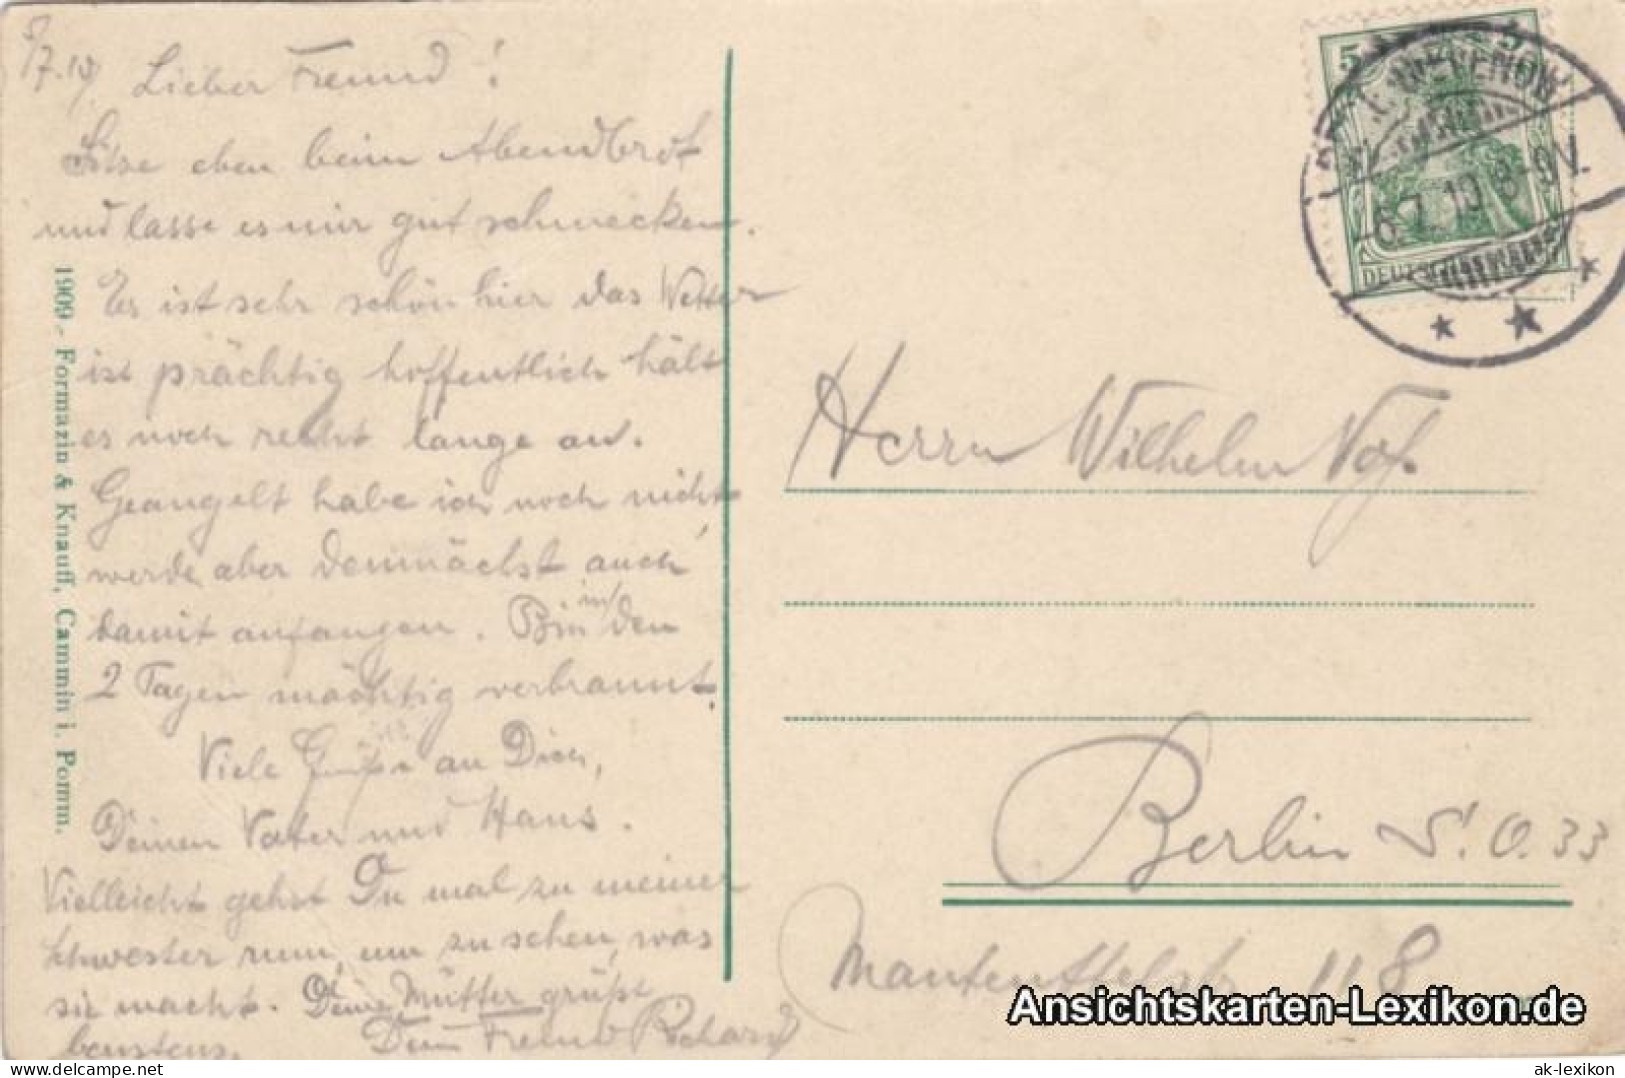 5/7.10
Lieber Freund!
Sitze eben beim Abendbrot
und lasse es mir gut schmecken.
Es ist sehr schön hier das Wetter
ist prächtig hoffentlich hält
es noch recht lange an.
Geangelt habe ich noch nicht,
werde aber demnächst auch
damit anfangen. Bin in den
2 Tagen mächtig verbrannt.
Viele Grüße an Dich,
Deinen Vater und Hans.
Vielleicht gehst Du mal zu meiner
Schwester rum, um zu sehen, was
sie macht. Deine Mutter grüßt
bestens.
Dein Freund Richard
1909.- Formazin & Knauff, Cammin i. Pomm.
5 5
DEUTSCHES
6.7.10.8-9V.
Herrn Wilhelm
Berlin S.O. 33
Manteuffelstr. 118
Ansichtskarten-Lexikon.de
Ansichtskarten-Lexikon
ak-lexikon